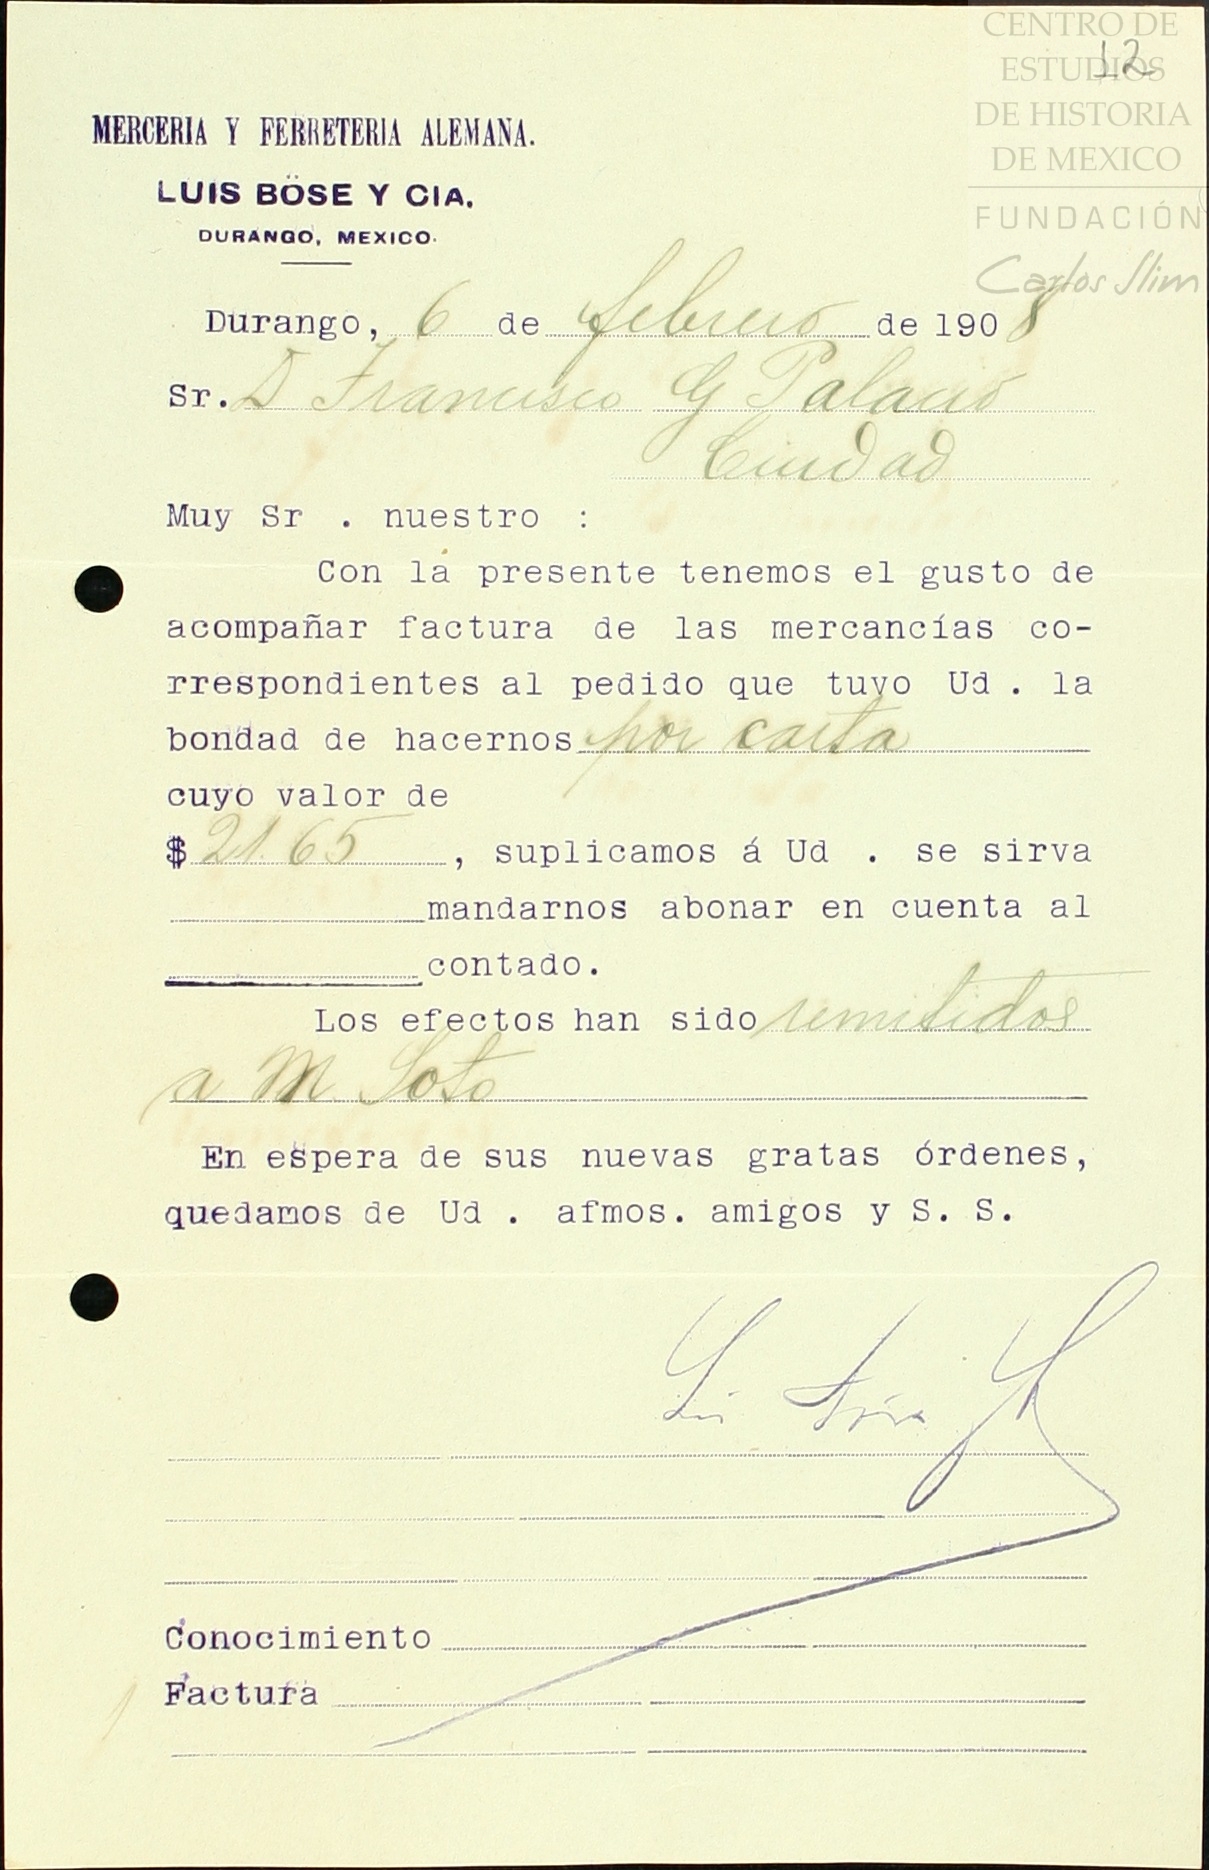 CENTRO DE
ESTUDIOS
DE HISTORIA
DE MEXICO
FUNDACIÓN
Carlos Slim
12
MERCERIA Y FERRETERIA ALEMANA.
LUIS BÖSE Y CIA.
DURANGO, MEXICO.
Durango, 6 de febrero de 1908
Sr. D Francisco G Palacio
Ciudad
Muy Sr . nuestro :
Con la presente tenemos el gusto de
acompañar factura de las mercancías co-
rrespondientes al pedido que tuvo Ud . la
bondad de hacernos por carta
cuyo valor de
$ 21.65 , suplicamos á Ud . se sirva
mandarnos abonar en cuenta al
contado.
Los efectos han sido remitidos
a M. Soto
En espera de sus nuevas gratas órdenes,
quedamos de Ud . afmos. amigos y S. S.
Conocimiento
Factura